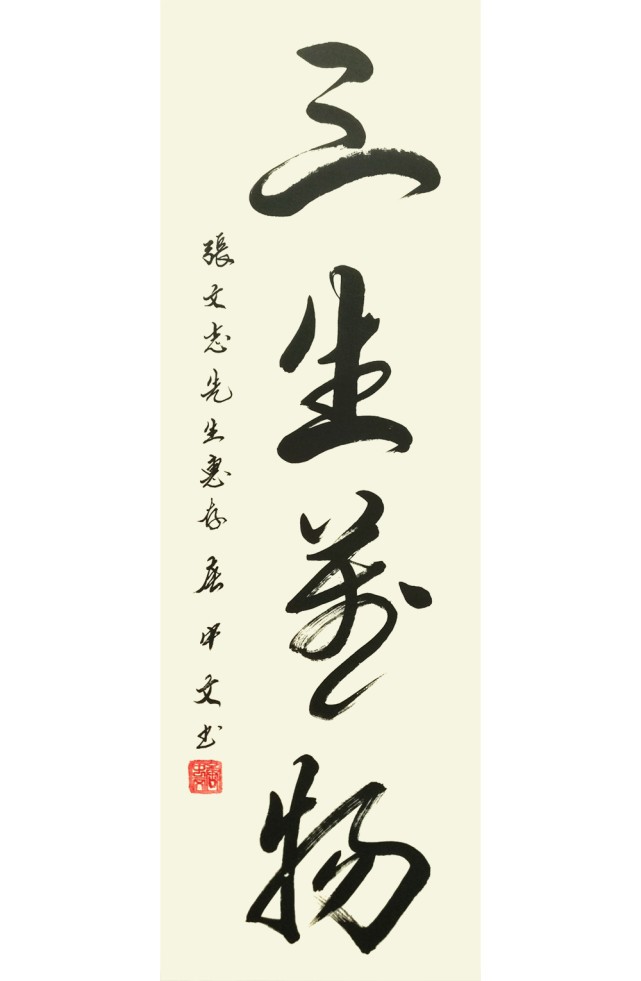 三生萬物
張文志先生惠存 屈中文书